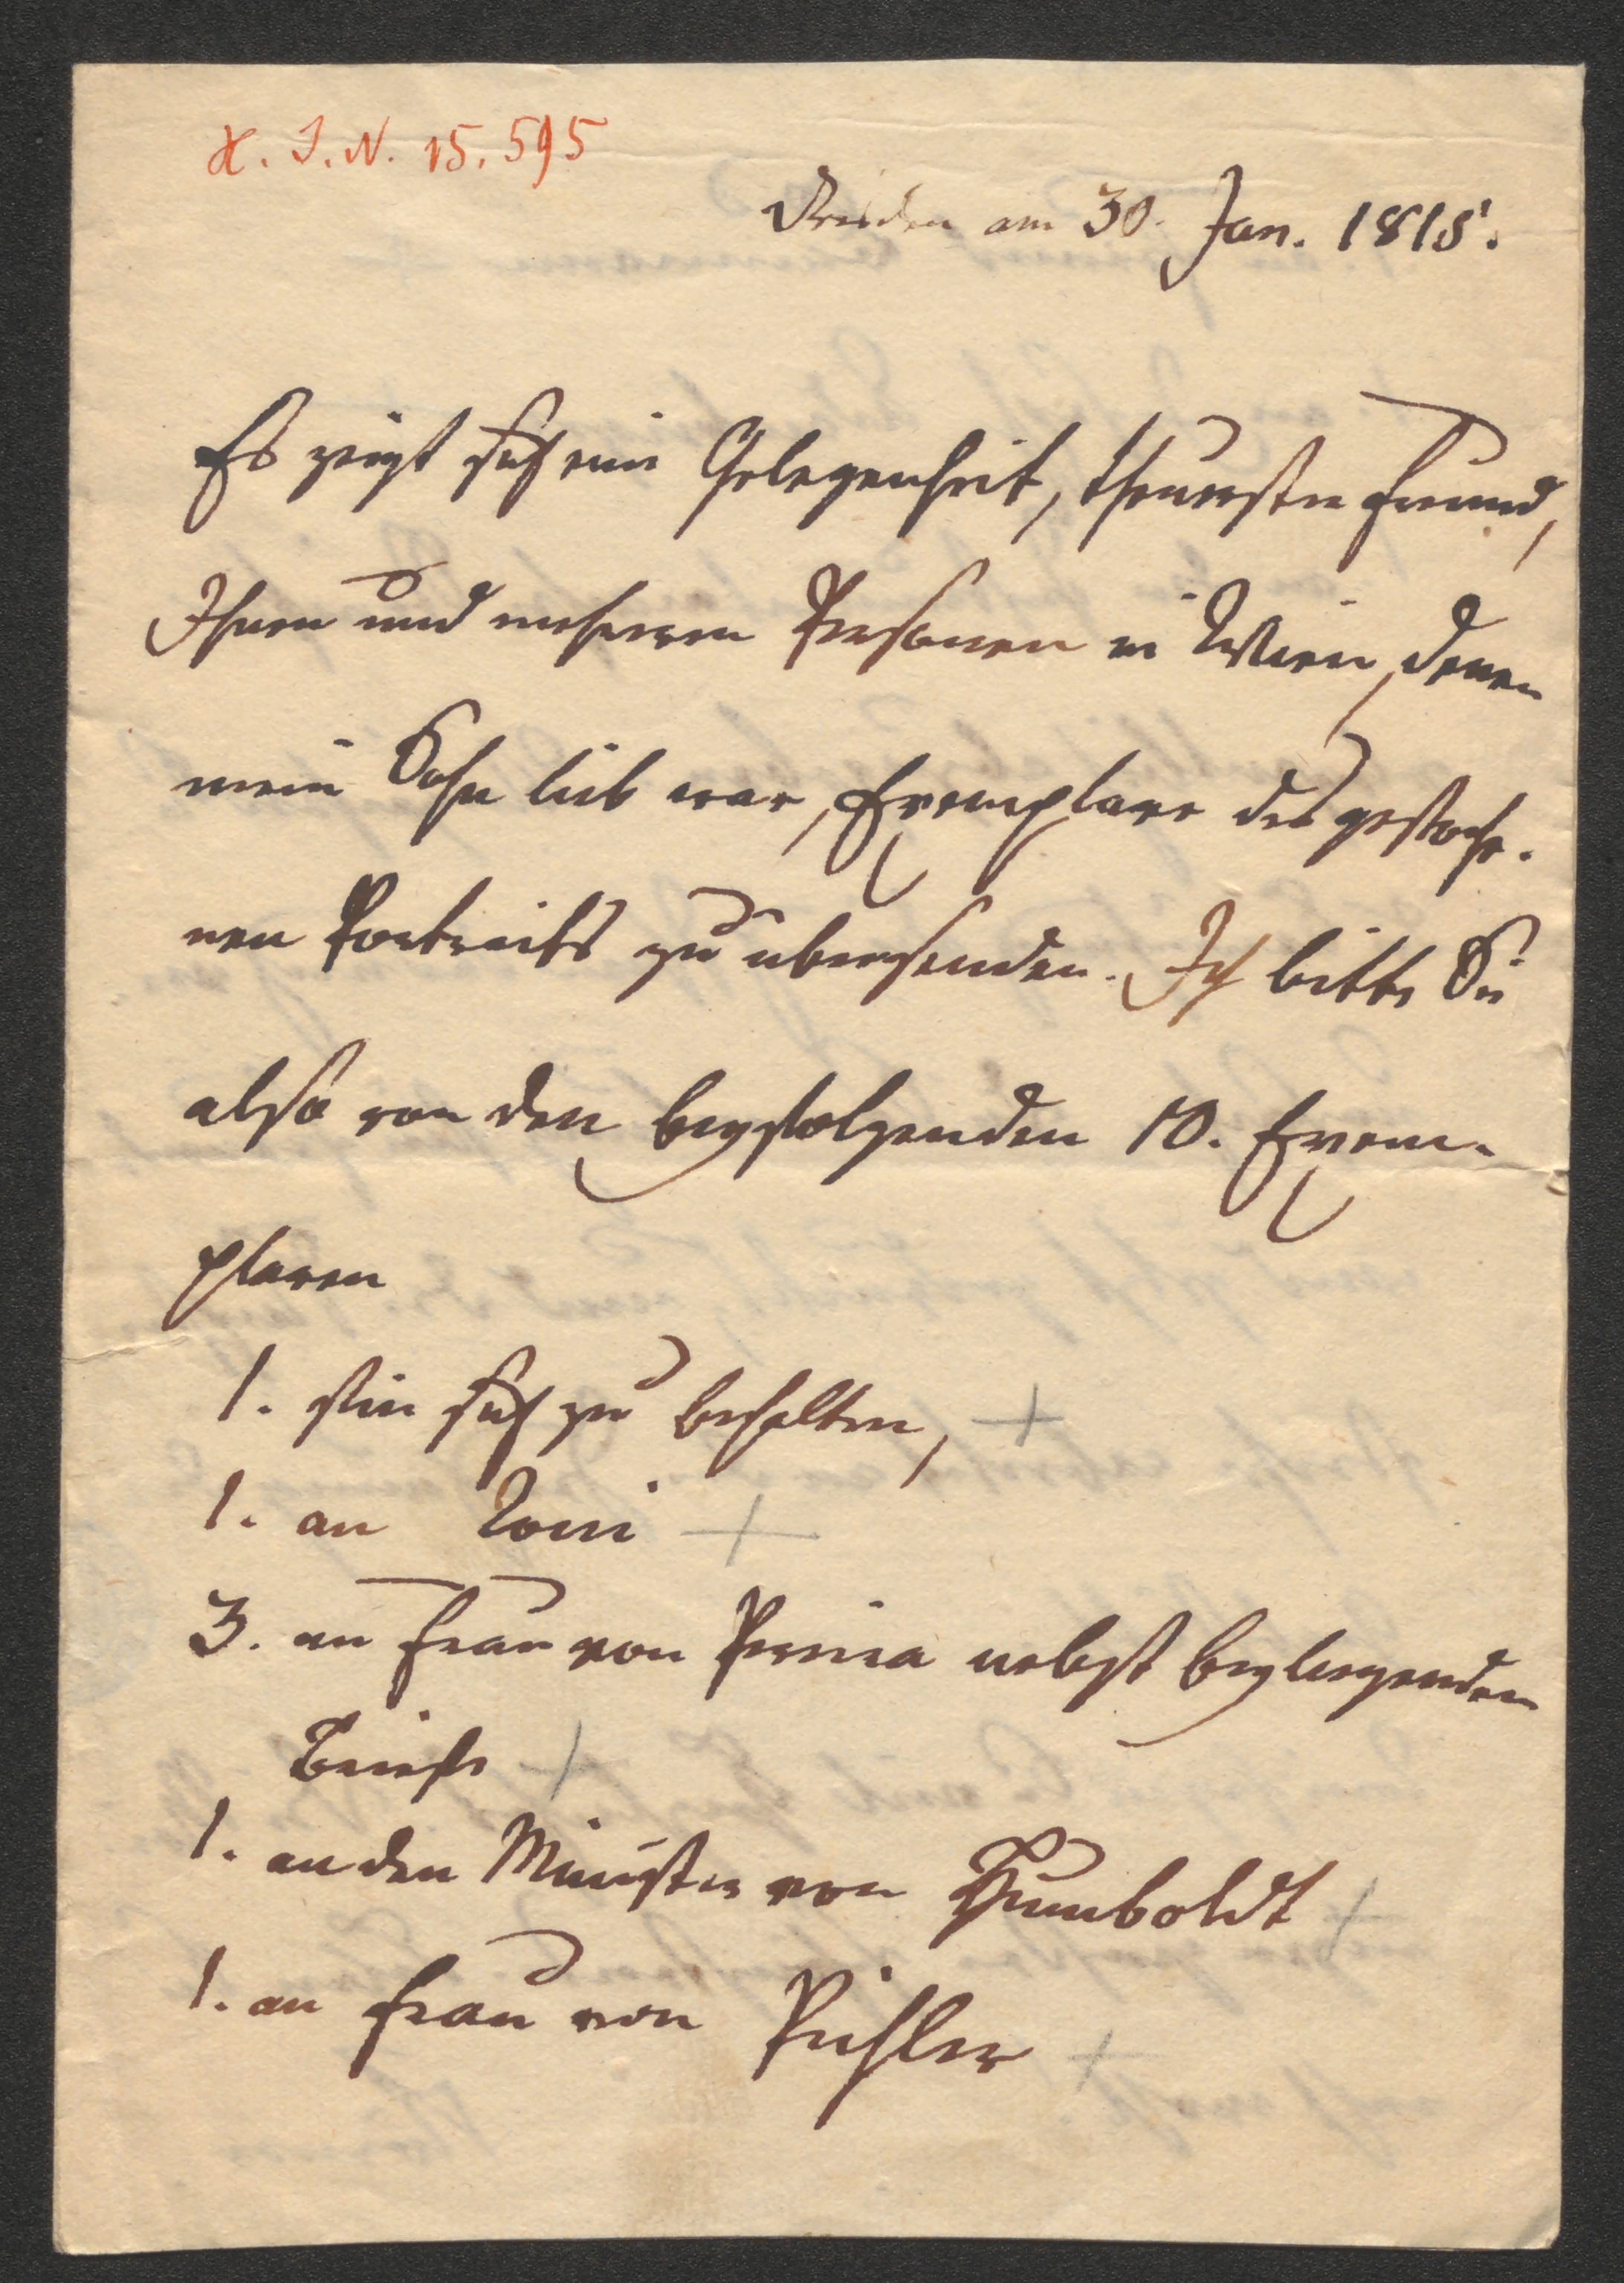 H. I. N. 15.595
Dresden am 30. Jan. 1815.
Es zeigt sich eine Gelegenheit, theurster Freund,
Ihnen und mehreren Personen in Wien, denen
mein Sohn lieb war, Exemplare des gestoche-
nen Portraits zu übersenden. Ich bitte Sie
also von den beyfolgenden 10. Exem-
plaren
1. für sich zu behalten,
1. an Toni
3. an Frau von Pereira nebst beyliegenden
Briefe
1. an den Minister von Humboldt
1. an Frau von Pichler